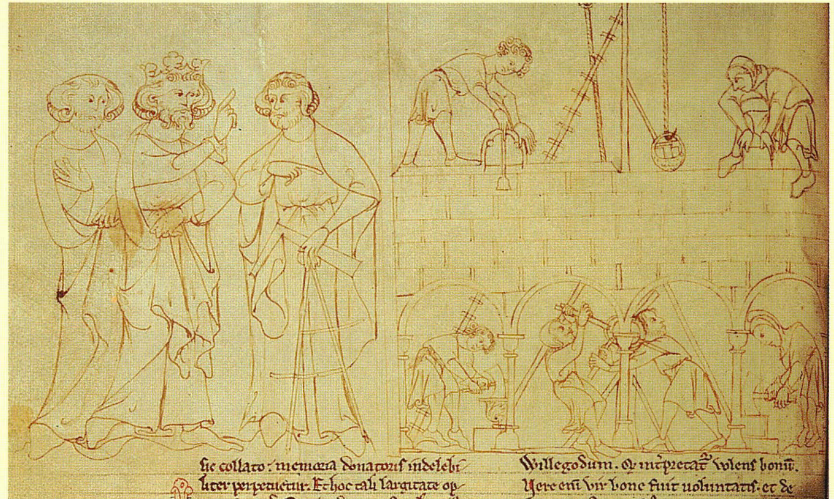 sic collato: memoria donatoris indelebi
liter perpetuetur. Et hoc tali largitate op
Willegodum. Qd int'pretat' volens bonũ.
Vere eni vir bone fuit voluntatis. et de